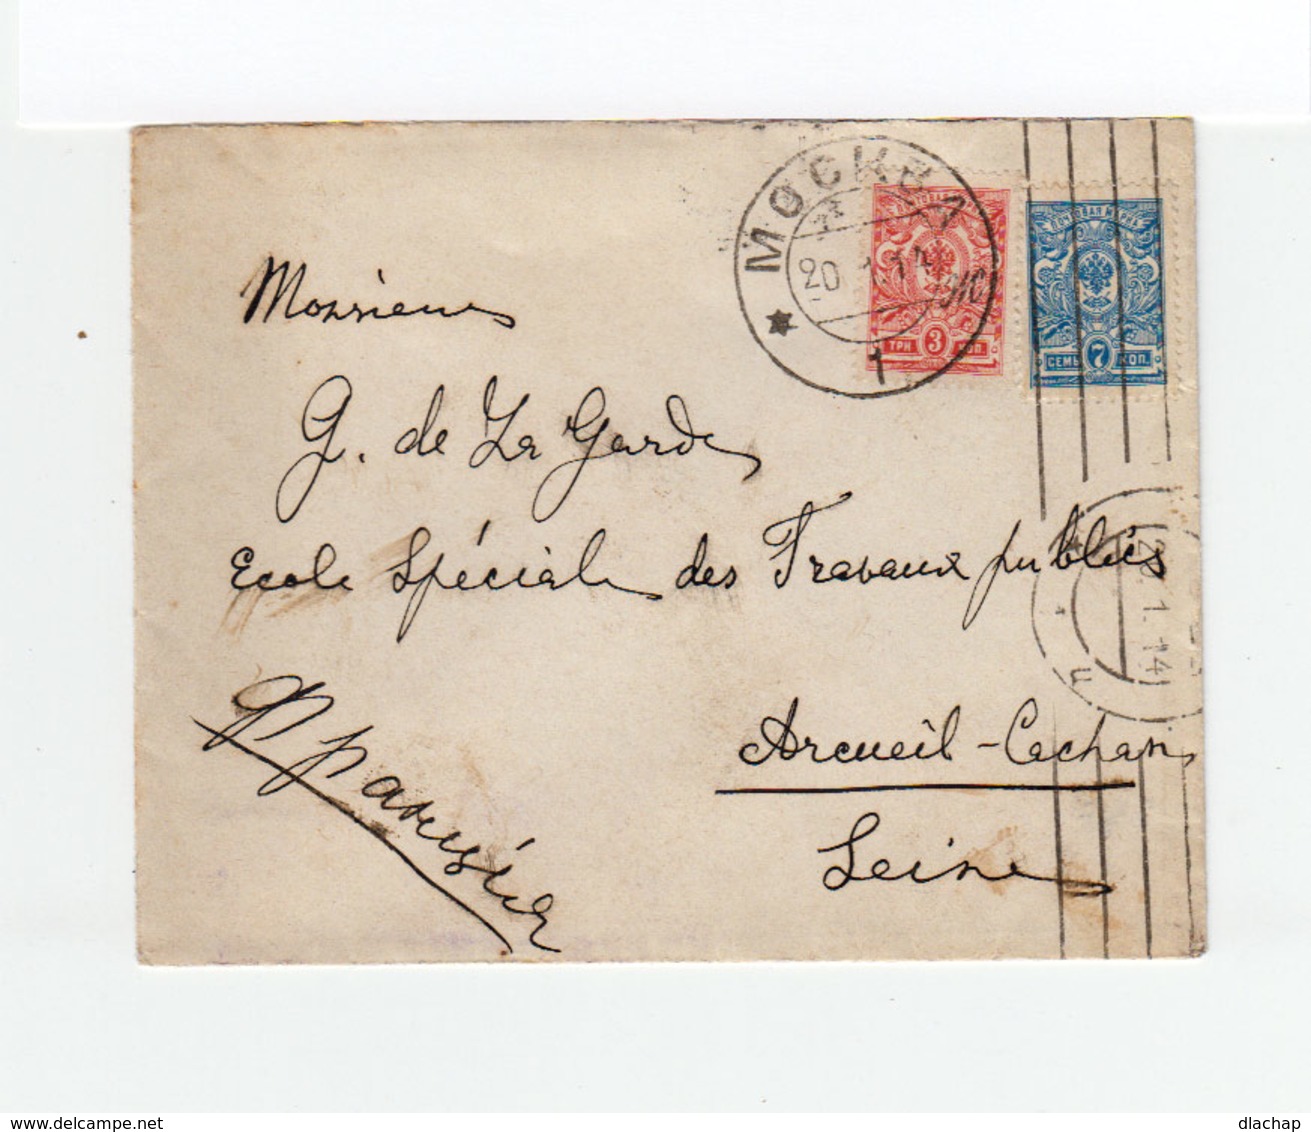 МОСКВА
20.1.14
1
ПОЧТОВАЯ МАРКА
ТРИ 3 КОП.
ПОЧТОВАЯ МАРКА
СЕМЬ 7 КОП.
Monsieur
G. de La Garde
Ecole Spéciale des Travaux publics
1.14
Arcueil-Cachan
Seine
Франція
delcampe.net
dlachap